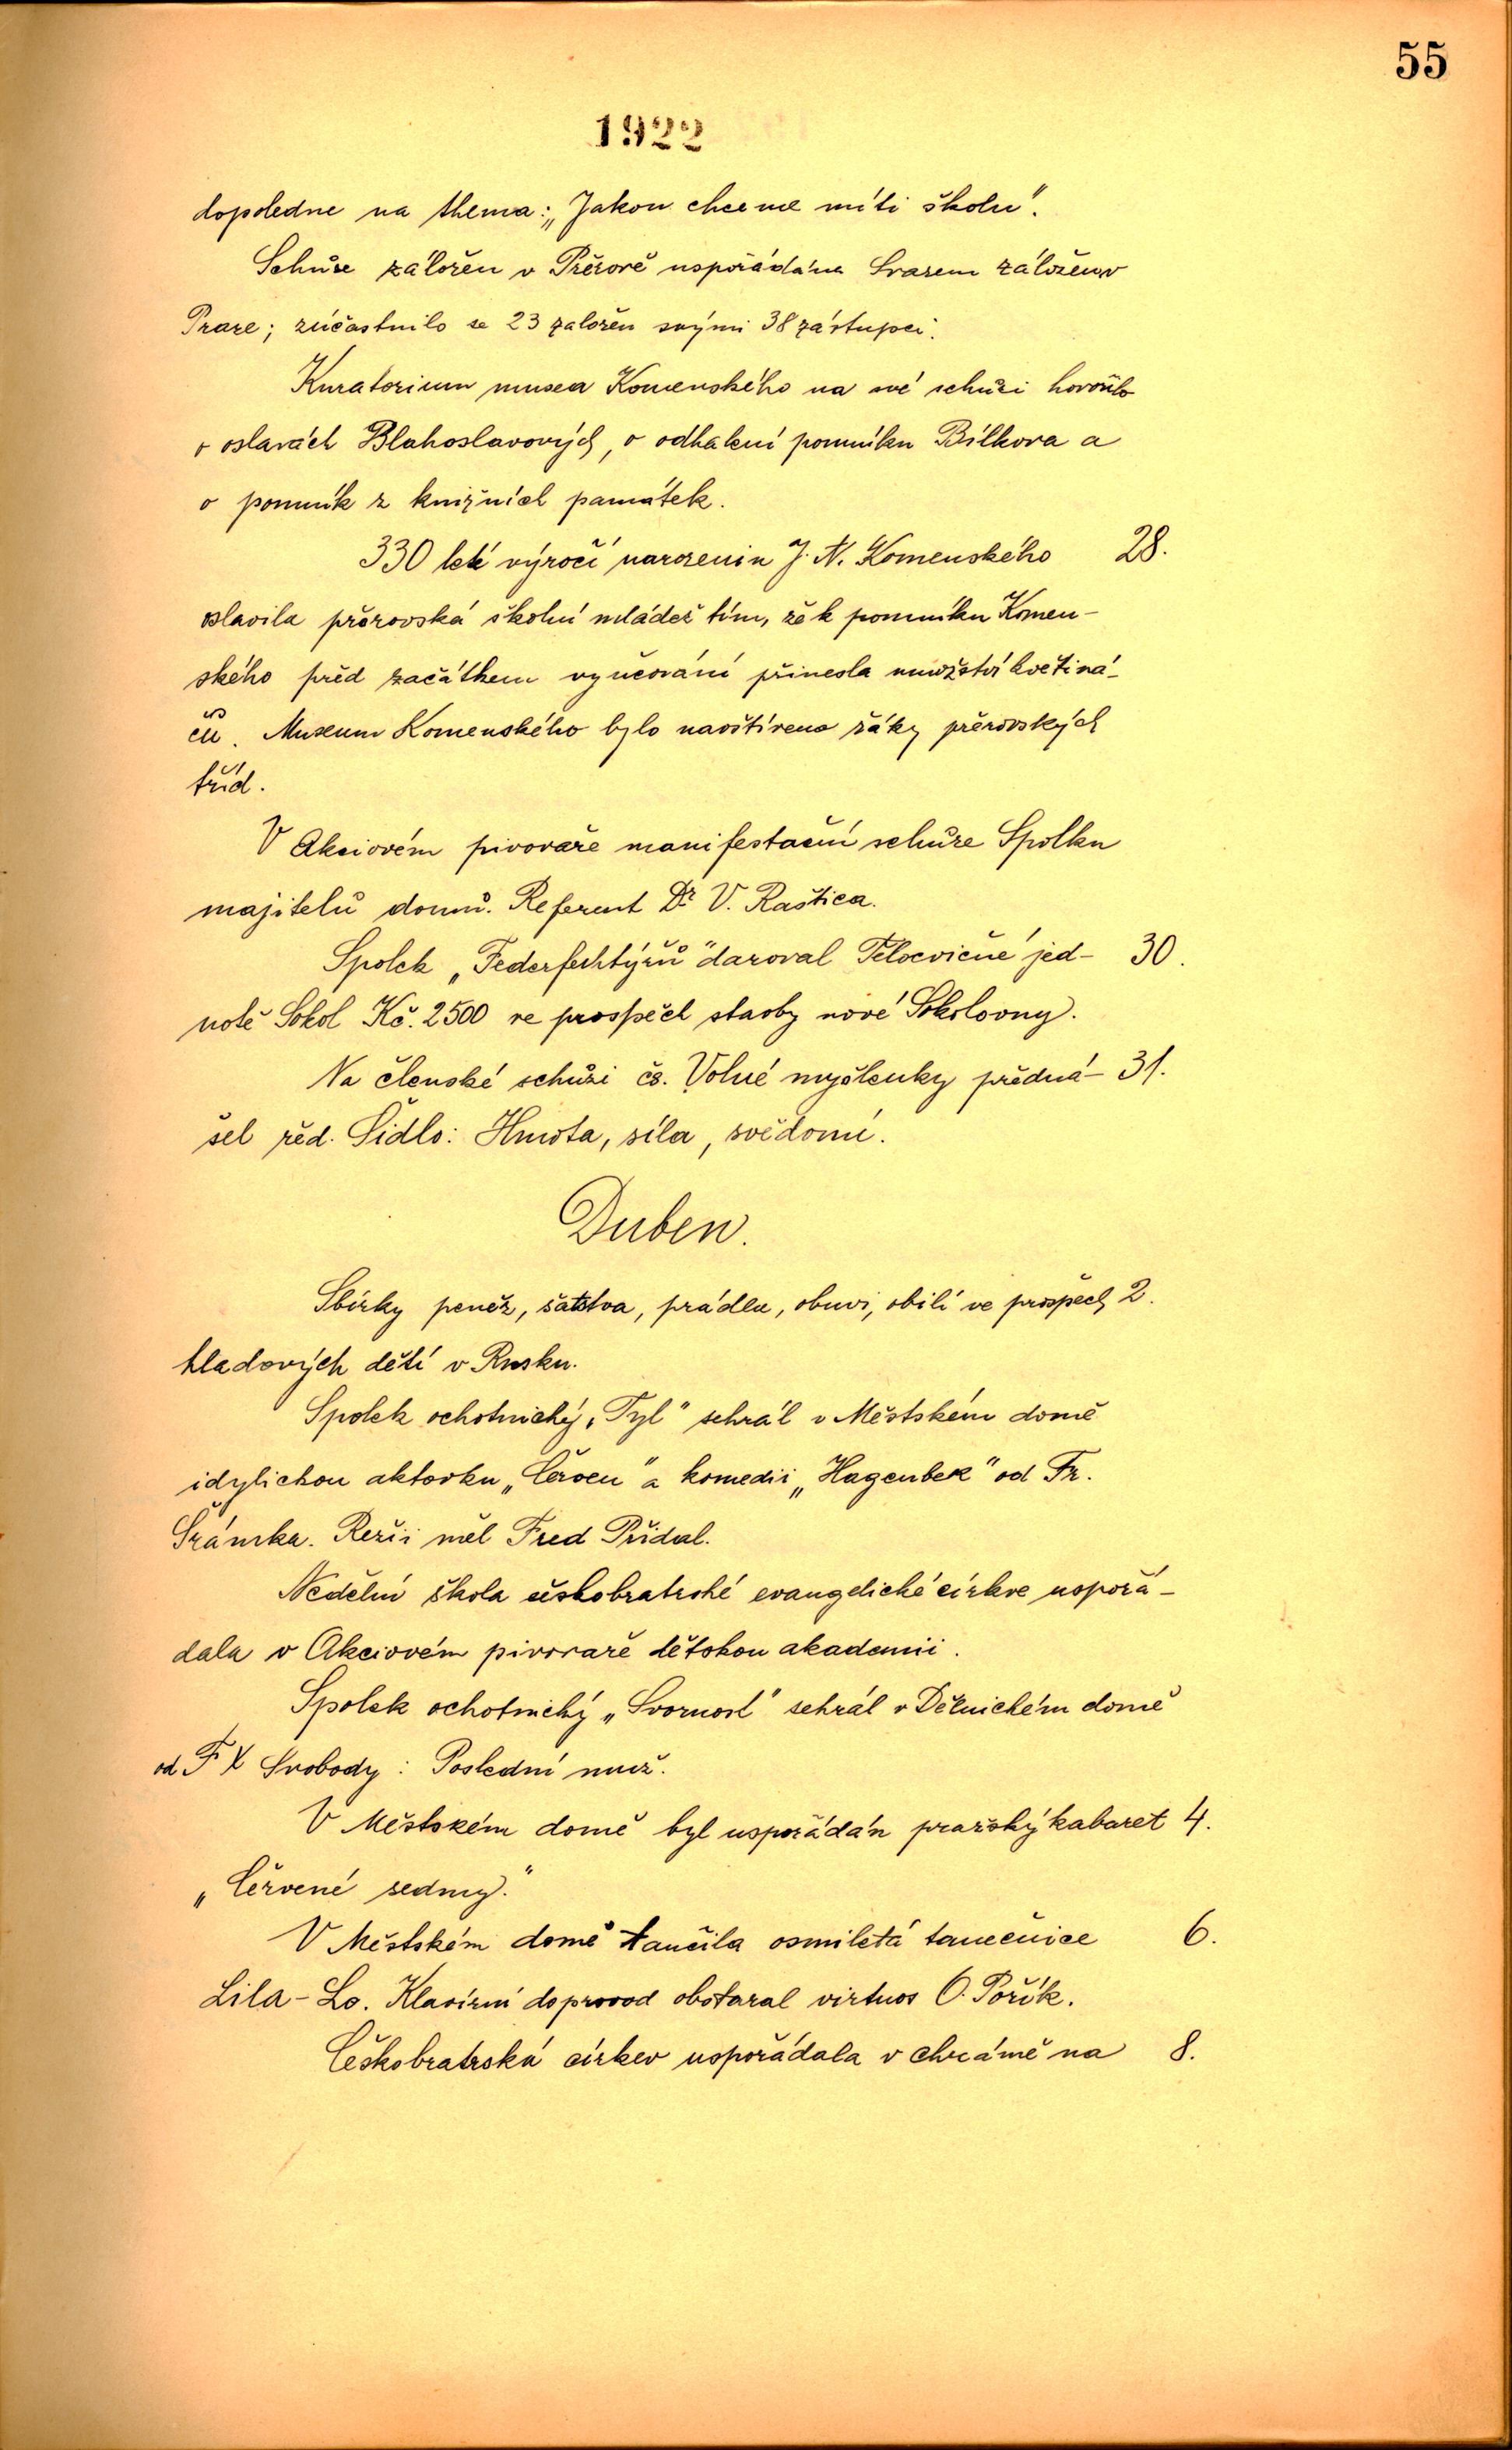 55
1922
dopoledne na thema: „Jakou chceme míti školu“.
Schůze záložen v Přerově uspořádána Svazem záložen v
Praze; zúčastnilo se 23 záložen svými 38 zástupci.
Kuratorium musea Komenského na své schůzi hovořilo
o oslavách Blahoslavových, o odhalení pomníku Bílkova a
o pomník z knižních památek.
330 leté výročí narozenin J. A. Komenského 28.
oslavila přerovská školní mládež tím, že k pomníku Komen-
ského před začátkem vyučování přinesla množství květiná-
čů. Museum Komenského bylo navštíveno žáky přerovských
tříd.
V Akciovém pivovaře manifestační schůze Spolku
majitelů domů. Referent Dr V. Raštica.
Spolek „Federfechtýřů“ daroval Tělocvičné jed- 30.
notě Sokol Kč. 2500 ve prospěch stavby nové Sokolovny.
Na členské schůzi čs. Volné myšlenky předná- 31.
šel řed. Šídlo: Hmota, síla, svědomí.
Duben.
Sbírky peněz, šatstva, prádla, obuvi, obilí ve prospěch 2.
hladových dětí v Rusku.
Spolek ochotnický „Tyl“ sehrál v Městském domě
idylickou aktovku „Červen“ a komedii „Hagenbek“ od Fr.
Šrámka. Režii měl Fred Přidal.
Nedělní škola českobratrské evangelické církve uspořá-
dala v Akciovém pivovaře dětskou akademii.
Spolek ochotnický „Svornost“ sehrál v Dělnickém domě
od F X Svobody: Poslední muž.
V Městském domě byl uspořádán pražský kabaret 4.
„Červené sedmy.“
V Městském domě tančila osmiletá tanečnice 6.
Lila-Lo. Klavírní doprovod obstaral virtuos O. Pořík.
Českobratrská církev uspořádala v chrámě na 8.